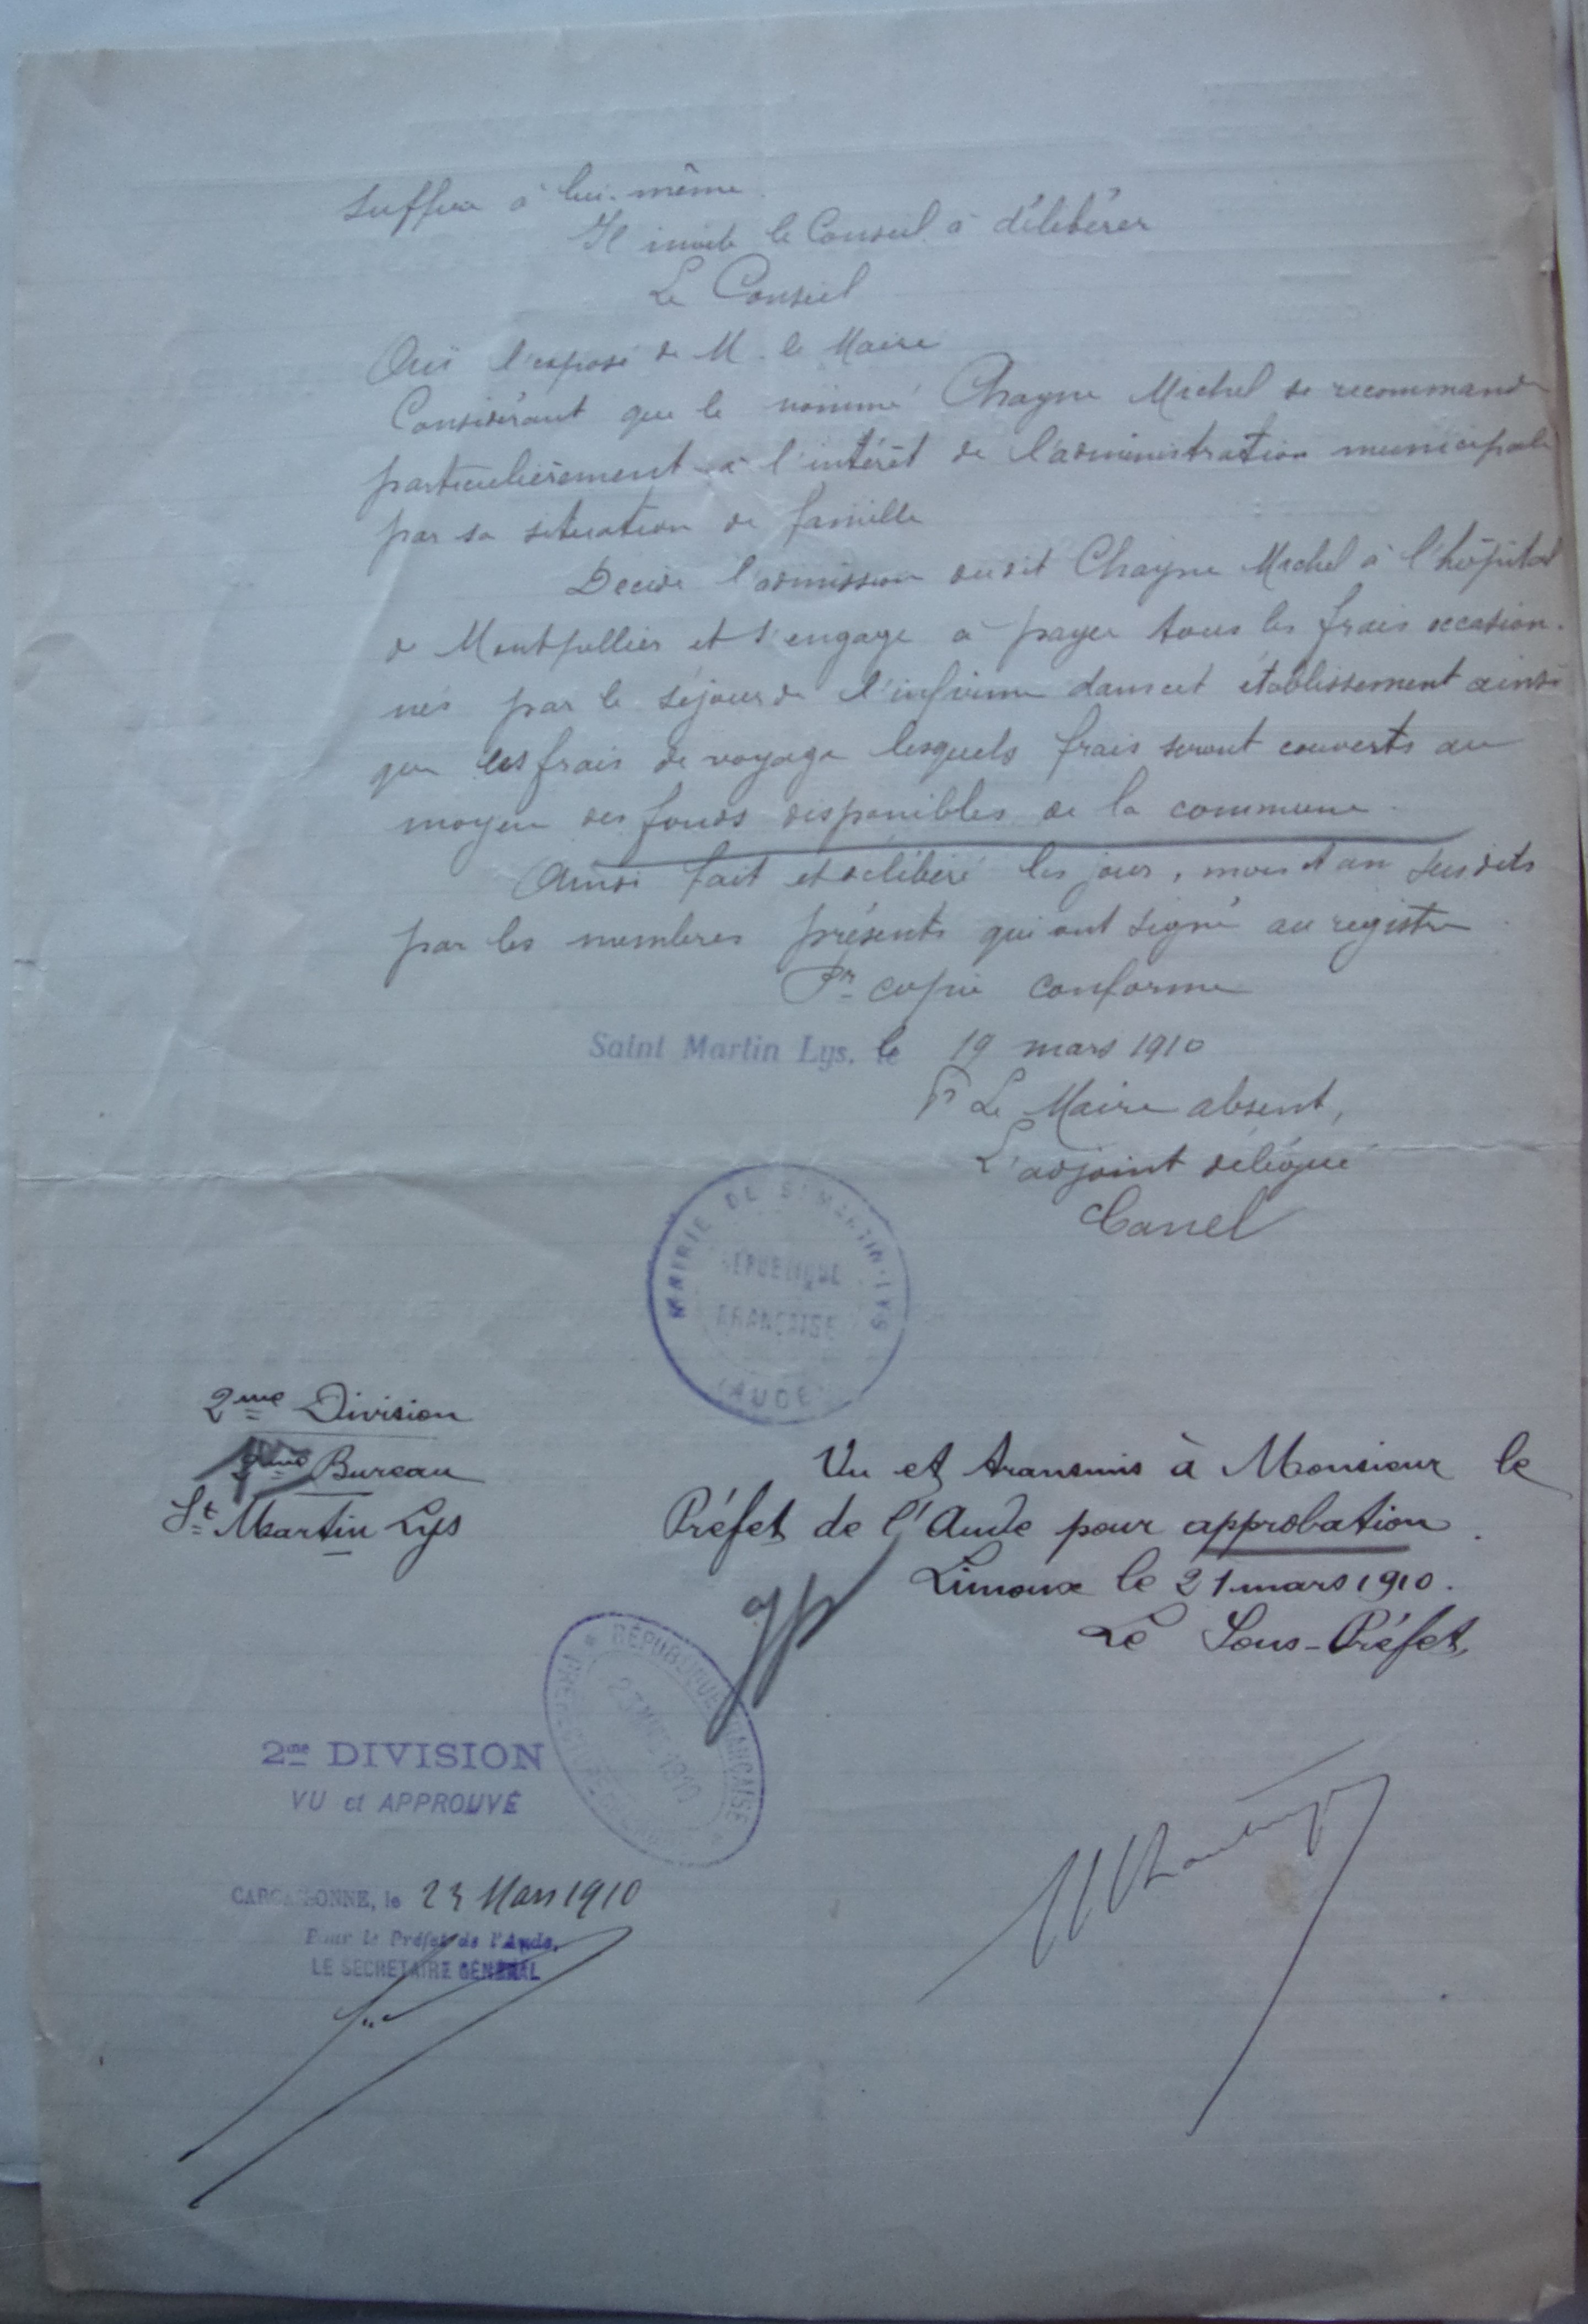 suffire à lui-même.
Il invite le Conseil à délibérer
Le Conseil
Ouï l'exposé de M. le Maire
Considérant que le nommé Chayne Michel se recommande
particulièrement à l'intérêt de l'administration municipale
par sa situation de famille
Décide l'admission dudit Chayne Michel à l'hôpital
de Montpellier et s'engage à payer tous les frais occasion-
nés par le séjour de l'infirme dans cet établissement ainsi
que les frais de voyage lesquels frais seront couverts au
moyen des fonds disponibles de la commune.
Ainsi fait et délibéré les jour, mois et an susdits
par les membres présents qui ont signé au registre.
Pr copie conforme
Saint Martin Lys. le 19 mars 1910
Pr Le Maire absent,
L'adjoint délégué
Canel
MAIRIE DE ST MARTIN-LYS
RÉPUBLIQUE
FRANÇAISE
(AUDE)
2me Division
Bureau
St Martin Lys
Vu et transmis à Monsieur le
Préfet de l'Aude pour approbation.
Limoux le 21 mars 1910.
Le Sous-Préfet,
RÉPUBLIQUE FRANÇAISE
1910
2me DIVISION
VU et APPROUVÉ
CARCASSONNE, le 23 Mars 1910
Pour le Préfet de l'Aude,
LE SECRÉTAIRE GÉNÉRAL